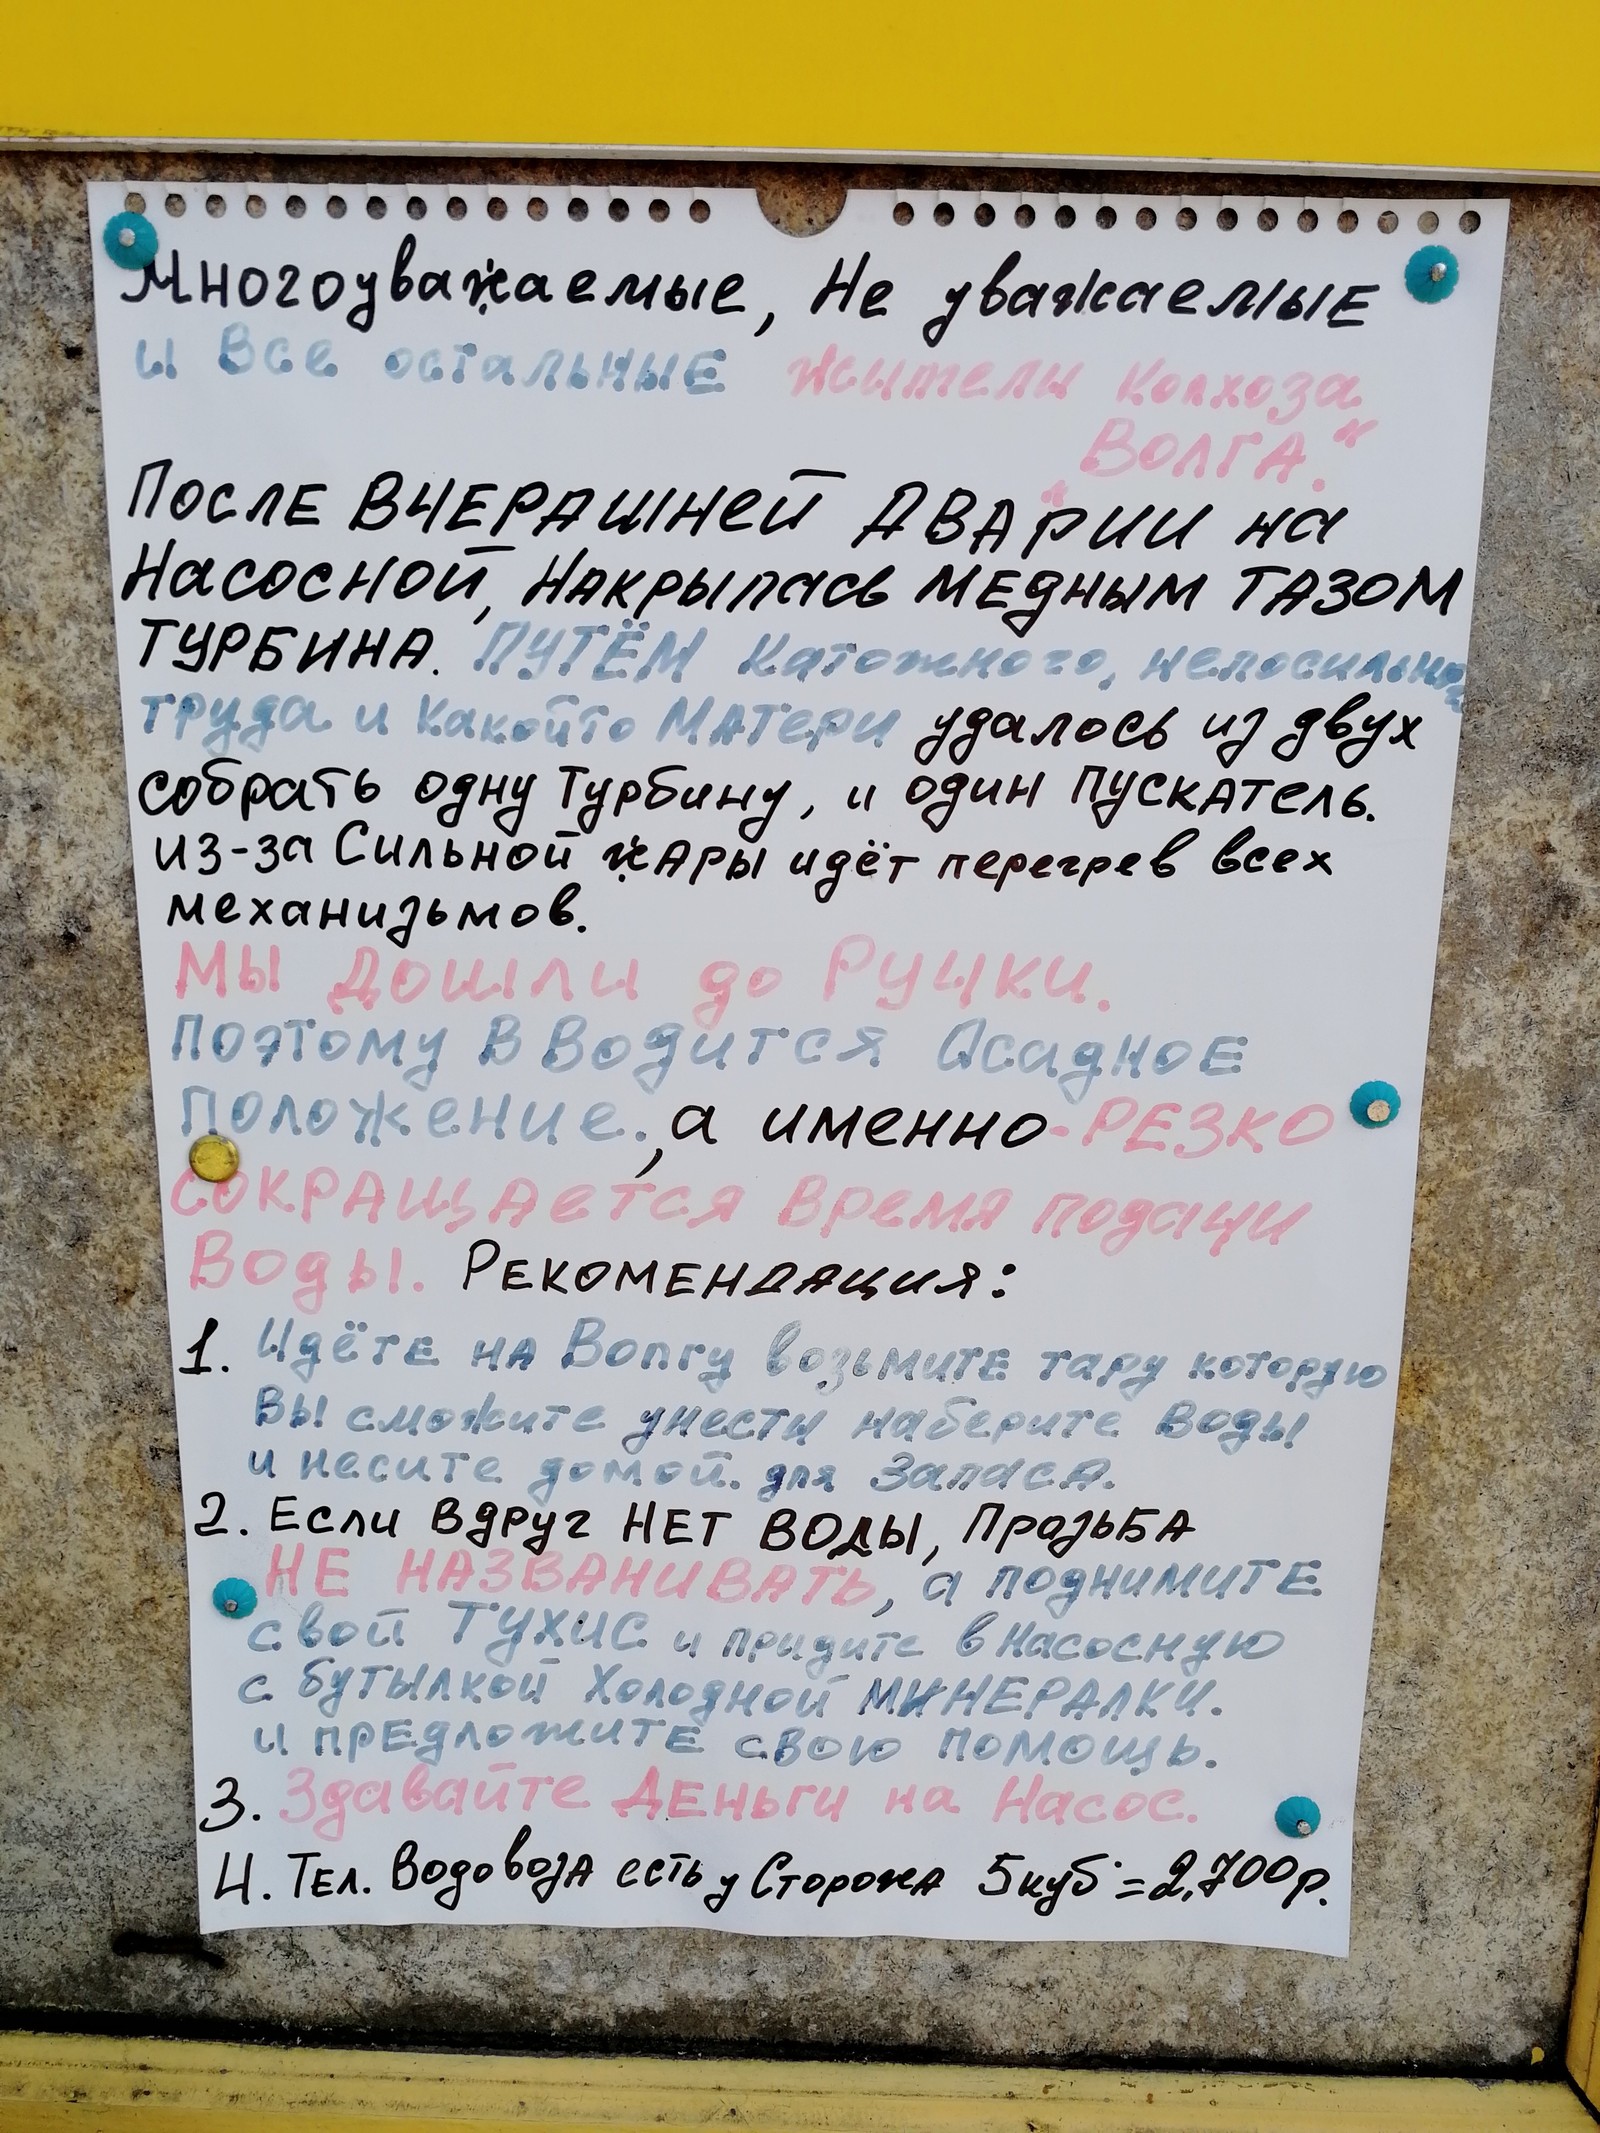 Многоуважаемые, Не уважаемые
и Все остальные жители колхоза
„ВОЛГА."
После ВЧЕРАШНей АВАРИИ на
Насосной, НАКРЫЛАСЬ МЕДНЫМ ТАЗОМ
ТУРБИНА. ПУТЁМ Катожного, непосильного
труда и Какойто МАТЕРИ удалось из двух
собрать одну Турбину, и один ПУСКАТЕЛЬ.
из-за Сильной жАРЫ идёт перегрев всех
механизьмов.
МЫ Дошли до Ручки.
Поэтому В Водится Асадное
Положение., а именно-РЕЗКО
СОКРАЩАется Время подачи
Воды. РЕКОМЕНДАЦИЯ:
1. Идёте на Волгу возьмите тару которую
Вы сможите унести наберите Воды
и несите домой. для Запаса.
2. Если вдруг НЕТ ВОДЫ, ПрозьБА
НЕ НАЗВАНИВАТЬ, а поднимите
свой ТУХИС и придите в насосную
с бутылкой Холодной МИНЕРАЛКИ.
и предложите свою помощь.
3. Здавайте Деньги на Насос.
4. Тел. Водовоза есть у Сторожа 5куб = 2,700р.